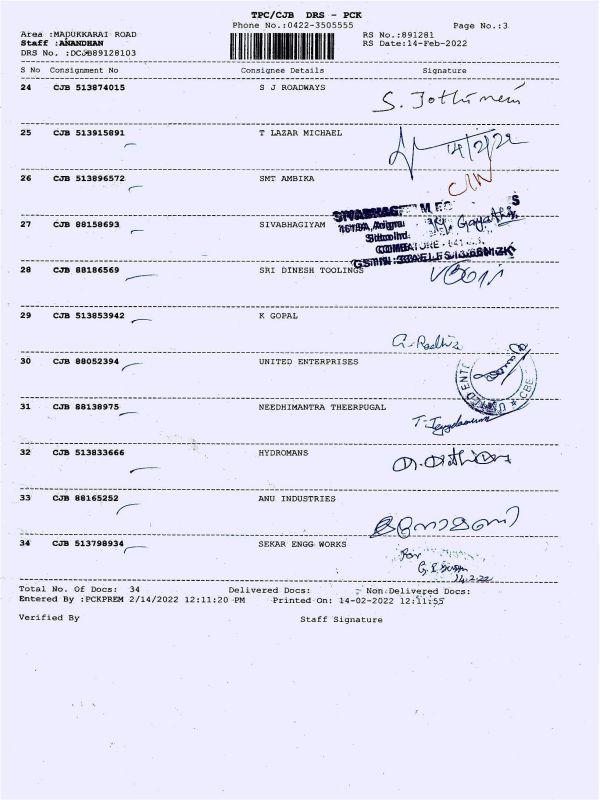 TPC/CJB DRS - PCK
Phone No.:0422-3505555 Page No.:3
Area :MADUKKARAI ROAD RS No.:891281
Staff :ANANDHAN RS Date:14-Feb-2022
DRS No. :DCJB89128103
S No Consignment No Consignee Details Signature
24 CJB 513874015 S J ROADWAYS
S. Jothimani
25 CJB 513915891 T LAZAR MICHAEL
14/2/22
26 CJB 513896572 SMT AMBIKA
27 CJB 88158693 SIVABHAGIYAM
Gayathri
COIMBATORE
28 CJB 88186569 SRI DINESH TOOLINGS
29 CJB 513853942 K GOPAL
G. Radhi
30 CJB 88052394 UNITED ENTERPRISES
CBE
31 CJB 88138975 NEEDHIMANTRA THEERPUGAL
32 CJB 513833666 HYDROMANS
33 CJB 88165252 ANU INDUSTRIES
34 CJB 513798934 SEKAR ENGG WORKS
For
14.2.22
Total No. Of Docs: 34 Delivered Docs: Non Delivered Docs:
Entered By :PCKPREM 2/14/2022 12:11:20 PM Printed On: 14-02-2022 12:11:55
Verified By Staff Signature